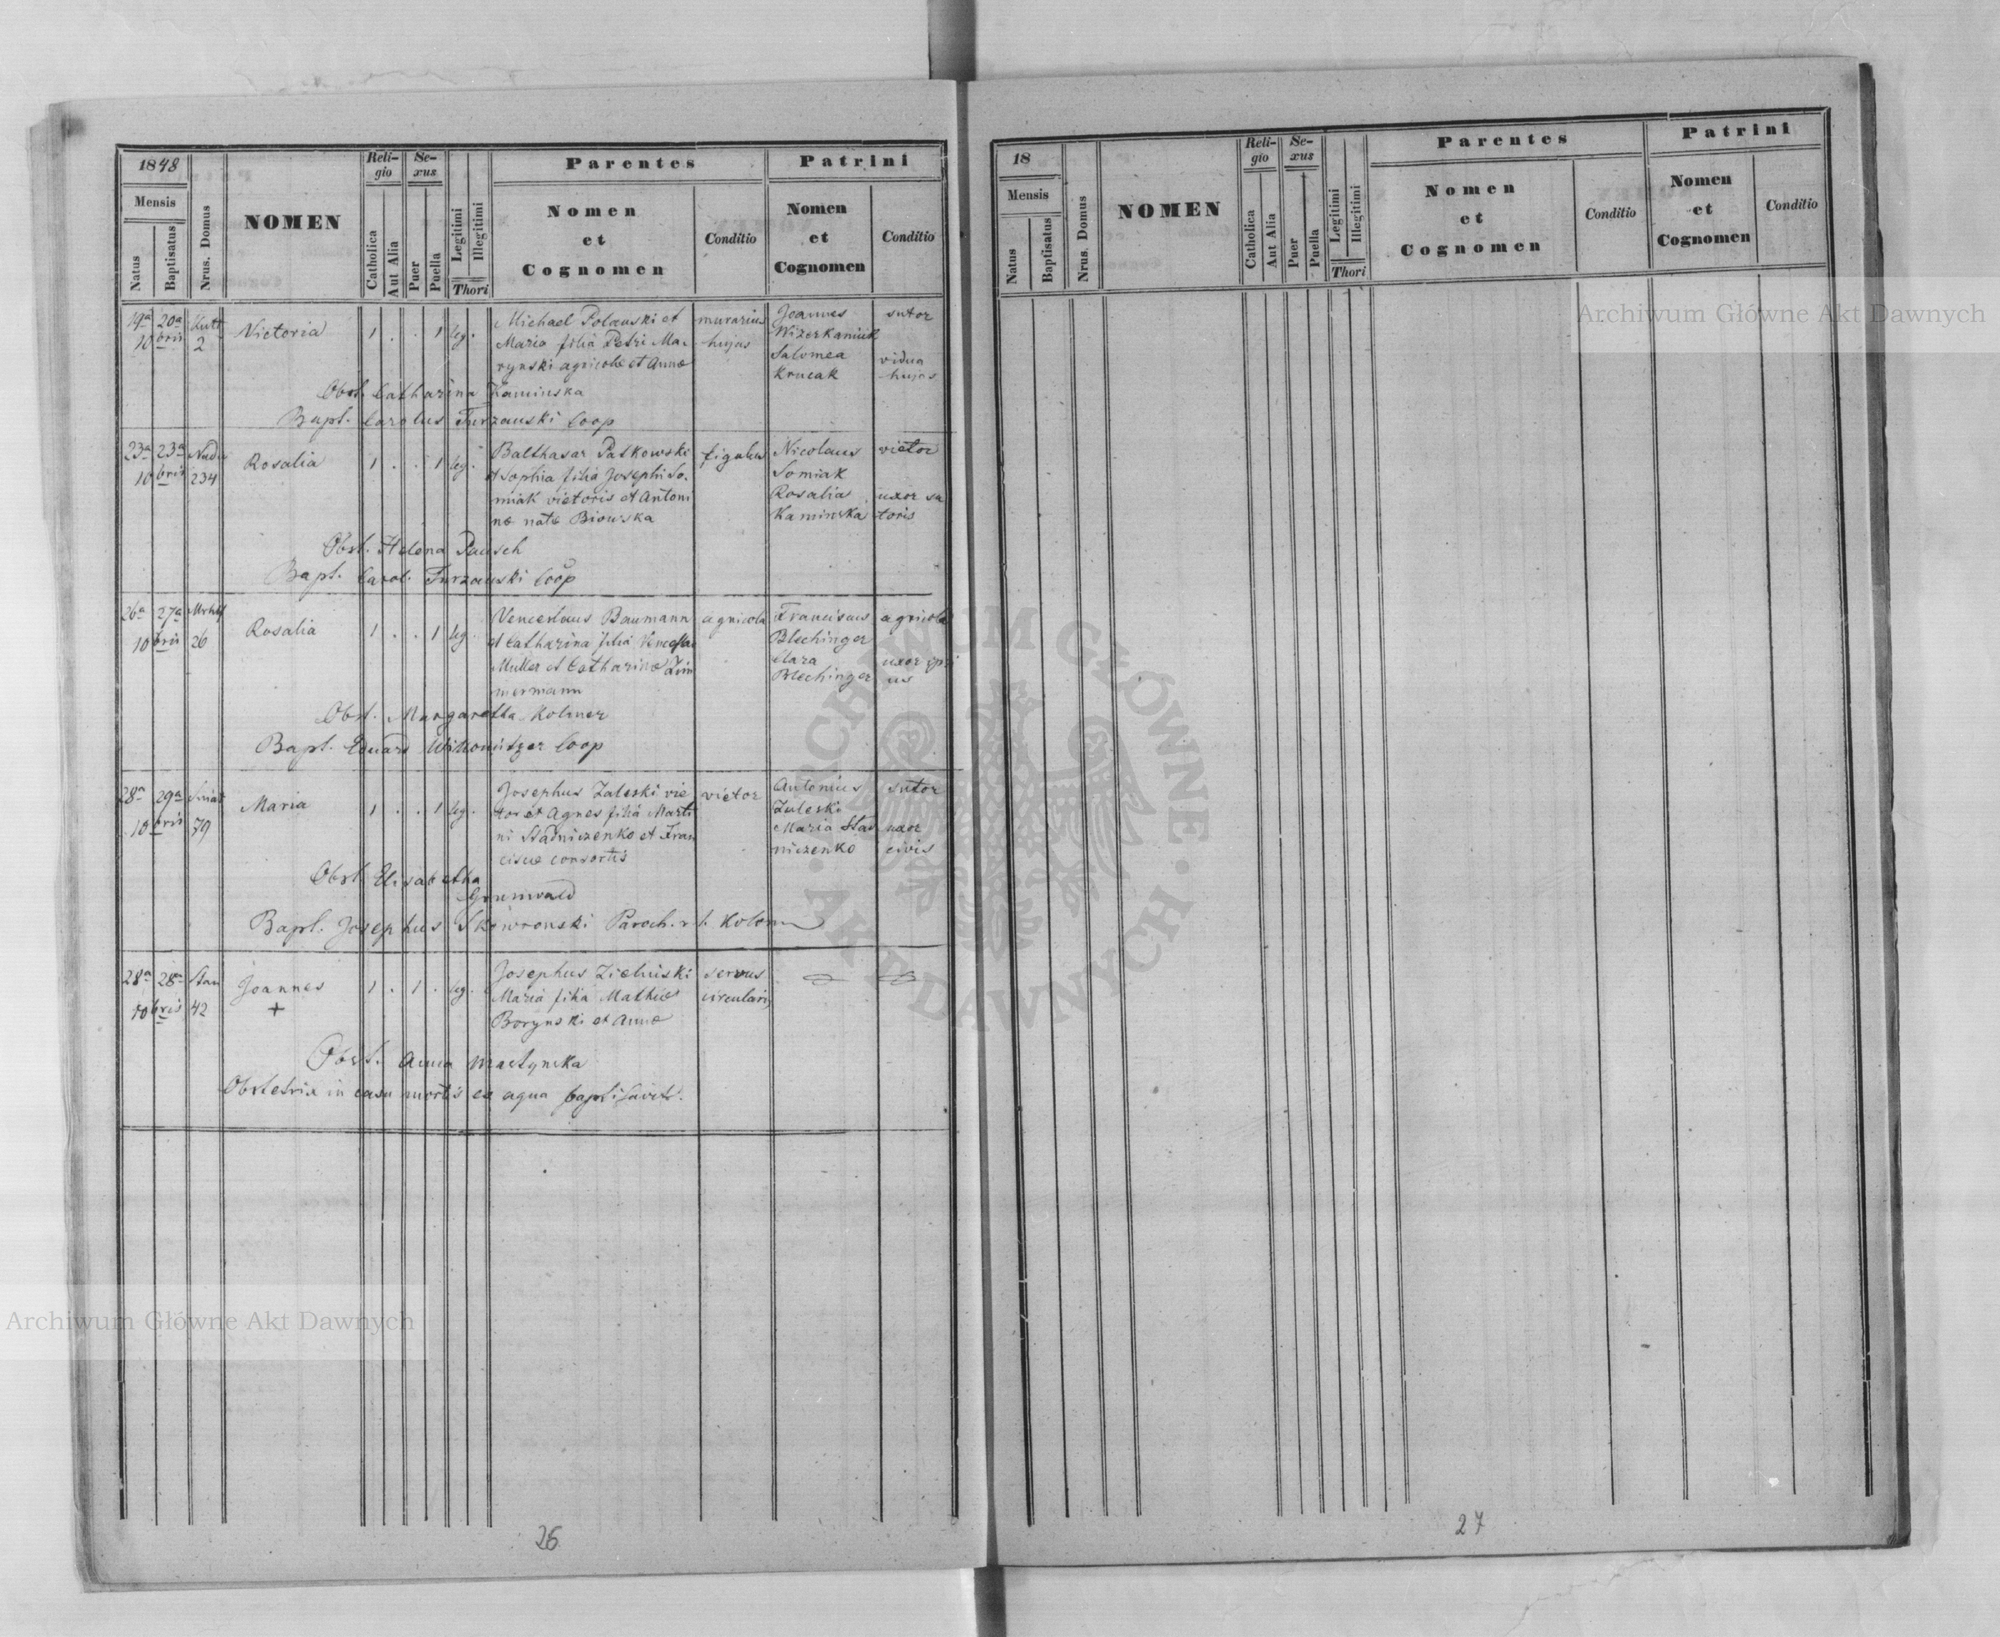 1848
Mensis
Natus
Baptisatus
Nrus. Domus
NOMEN
Religio
Catholica
Aut Alia
Sexus
Puer
Puella
Legitimi
Illegitimi
Thori
Parentes
Nomen
et
Cognomen
Conditio
Patrini
Nomen
et
Cognomen
Conditio
19a 20a
10bris
2
Victoria
1 . . 1 leg.
Michael Polanski et
Maria filia Petri Ma-
rynski agricolæ et Annæ
murarius
hujas
Joannes
Salomea
Krucak
sutor
vidua
hujas
Obst. Catharina Kaminska
Bapt. Carolus Turzanski Coop
23a 23a
10bris
234
Rosalia
1 . . 1 leg.
Balthasar Patkowski
et Sophia filia Josephi So-
miak vietoris et Antoni
næ natæ Biowska
figulus
Nicolaus
Somiak
Rosalia
Kaminska
vietor
uxor su
toris
Obst. Helena Pausch
Bapt. Carol. Turzanski Coop
26a 27a
10bris
26
Rosalia
1 . . 1 leg.
Venceslaus Baumann
et Catharina filia Vencesla
Muller et Catharinæ Zim
mermann
agricola
Franciscus
Blechinger
Clara
Blechinger
agricola
uxor ipsi
us
Obst. Margaretta Kolmer
Bapt. Eduard Witkowitzer Coop
28a 29a
10bris
79
Maria
1 . . 1 leg.
Josephus Zaleski vie
tor et Agnes filia Marti
ni Stadniczenko et Fran
ciscæ consortis
vietor
Antonius
Zaleski
Maria Stad
niczenko
sutor
uxor
civis
Obst. Elisabetha
Grunwald
Bapt. Josephus Skowronski Paroch. r. l. Kolom
28a 28a
10bris
Stan
42
Joannes
+
1 . 1 . leg.
Josephus Zielinski
Maria filia Mathiæ
Borynski et Annæ
servus
circularis
Obst. Anna Martynska
Obstetrix in casu mortis ex aqua baptisavit.
26
18
Mensis
Natus
Baptisatus
Nrus. Domus
NOMEN
Religio
Catholica
Aut Alia
Sexus
Puer
Puella
Legitimi
Illegitimi
Thori
Parentes
Nomen
et
Cognomen
Conditio
Patrini
Nomen
et
Cognomen
Conditio
27
Archiwum Główne Akt Dawnych
Archiwum Główne Akt Dawnych
ARCHIWUM GŁÓWNE · AKT DAWNYCH ·